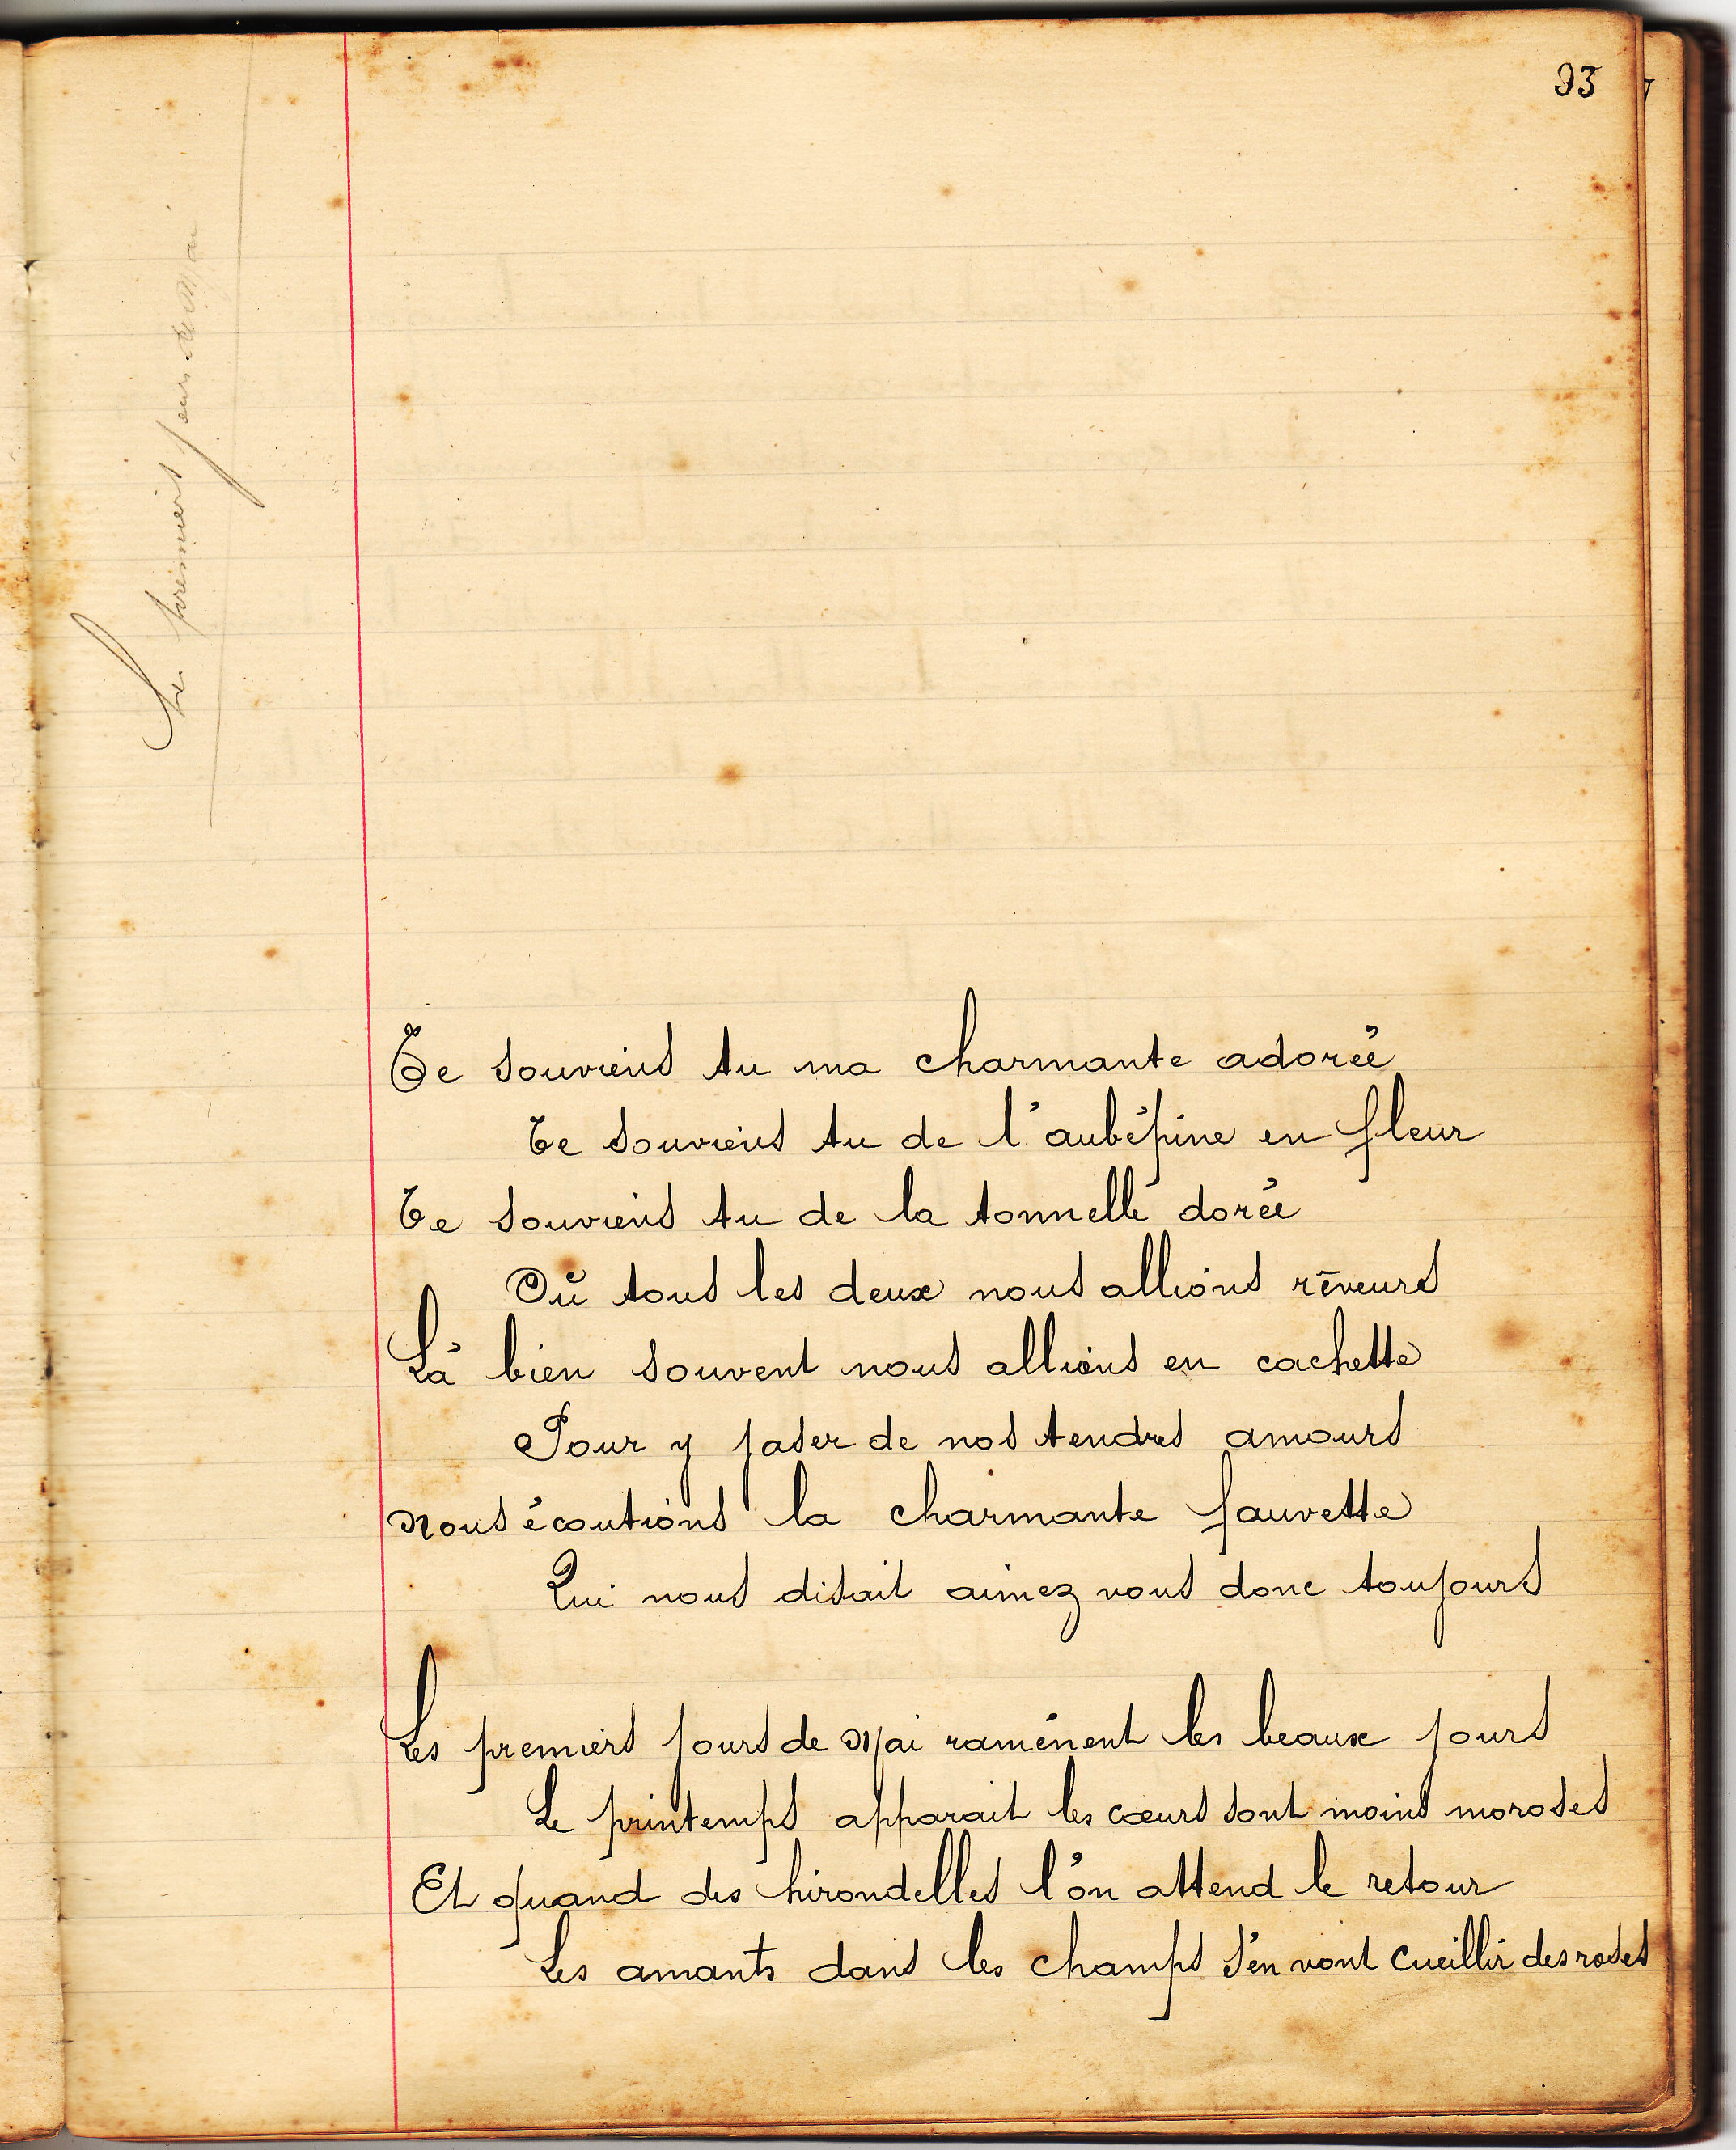 93
Le premiers jours de Mai
Te souviens tu ma charmante adorée
Te souviens tu de l'aubépine en fleur
Te souviens tu de la tonnelle dorée
Où tous les deux nous allions rêveurs
Là bien souvent nous allions en cachette
Pour y jaser de nos tendres amours
Nous écoutions la charmante fauvette
Qui nous disait aimez vous donc toujours
Les premiers jours de Mai ramènent les beaux jours
Le printemps apparait les cœurs sont moins moroses
Et quand des hirondelles l'on attend le retour
Les amants dans les champs s'en vont cueillir des roses